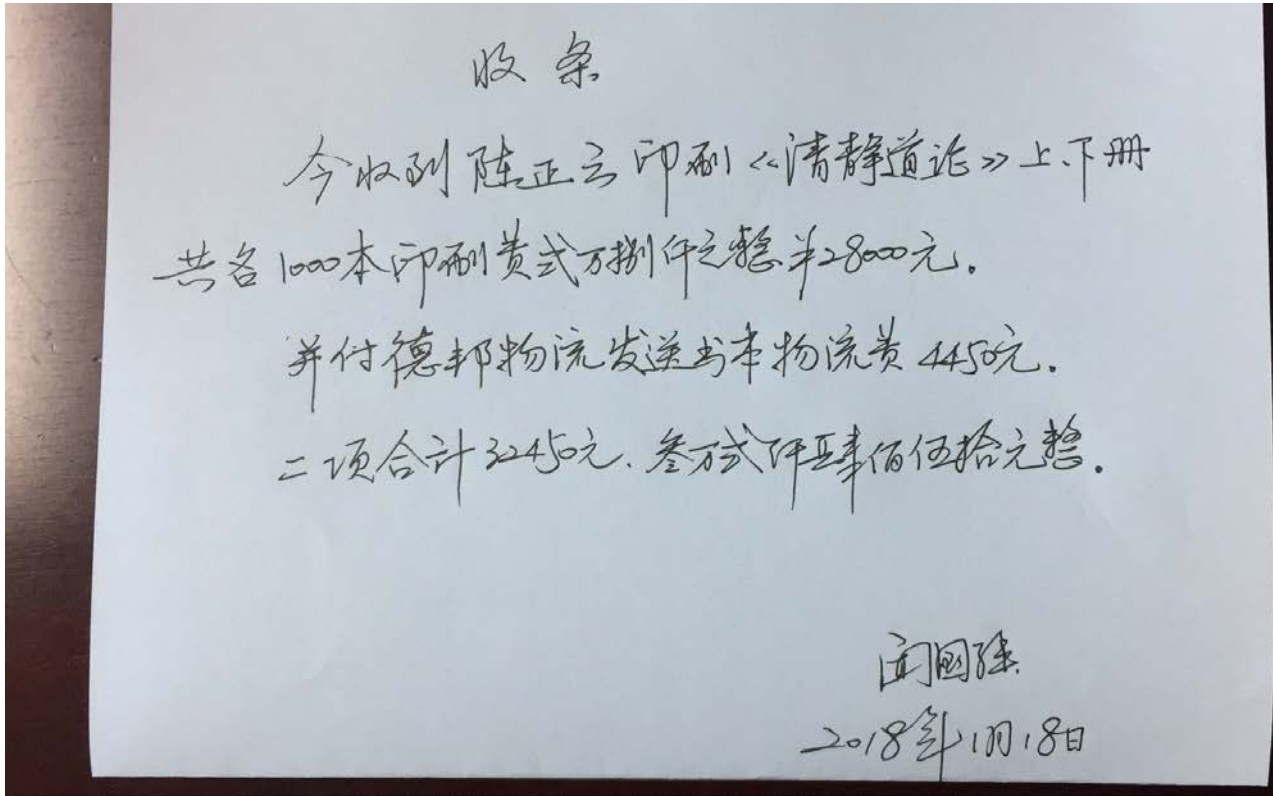 收条
今收到陈正云印刷《清静道论》上、下册
共各1000本印刷费弍万捌仟元整¥28000元。
并付德邦物流发送书本物流费4450元。
二项合计32450元、叁万弍仟肆佰伍拾元整。
2018年1月18日